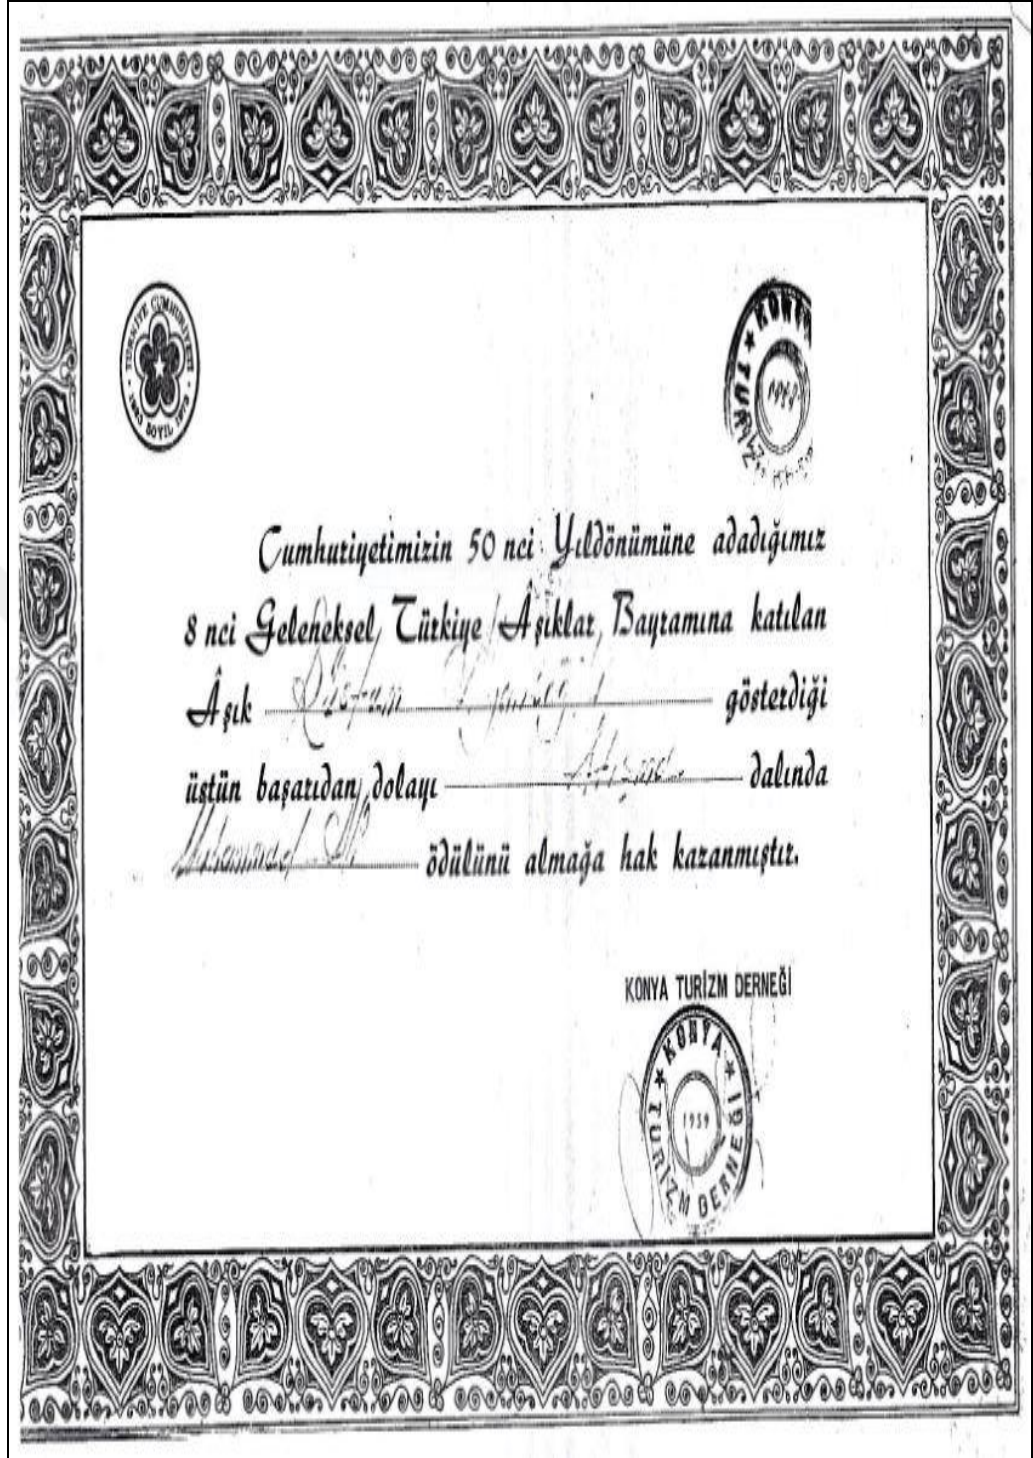 TÜRKİYE CUMHURİYETİ
50 YIL
KONYA
Cumhuriyetimizin 50 nci Yıldönümüne adadığımız
8 nci Geleneksel Türkiye Âşıklar Bayramına katılan
Âşık gösterdiği
üstün başarıdan dolayı Atışma dalında
ödülünü almağa hak kazanmıştır.
KONYA TURİZM DERNEĞİ
KONYA TURİZM DERNEĞİ
1959